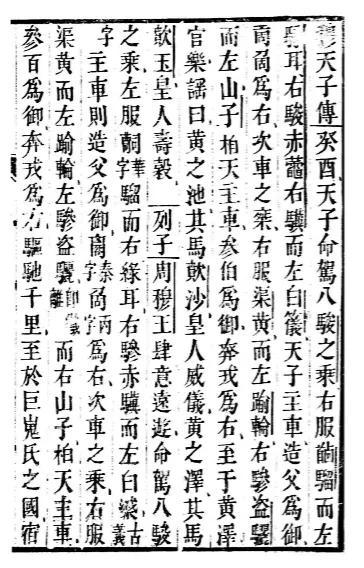 穆天子傳癸酉天子命駕八駿之乘右服騮而左
耳右駿赤右驥而左白天子主車造父爲御
爲右次車之乘右服渠黃而左踰輪右驂盜驪
而左山子柏天主車參伯爲御奔戎爲右至于黃澤
官樂謠曰黃之池其馬歕沙皇人威儀黃之澤其馬
歕玉皇人壽穀列子周穆王肆意遠遊命駕八駿
之乘左服華字騮而右綠耳右驂赤驥而左白古義
字主車則造父爲御泰字丙字爲右次車之乘右服
渠黃而左踰輪左驂盜驪而右山子柏天主車
參百爲御奔戎爲右驅馳千里至於巨嵬氏之國宿